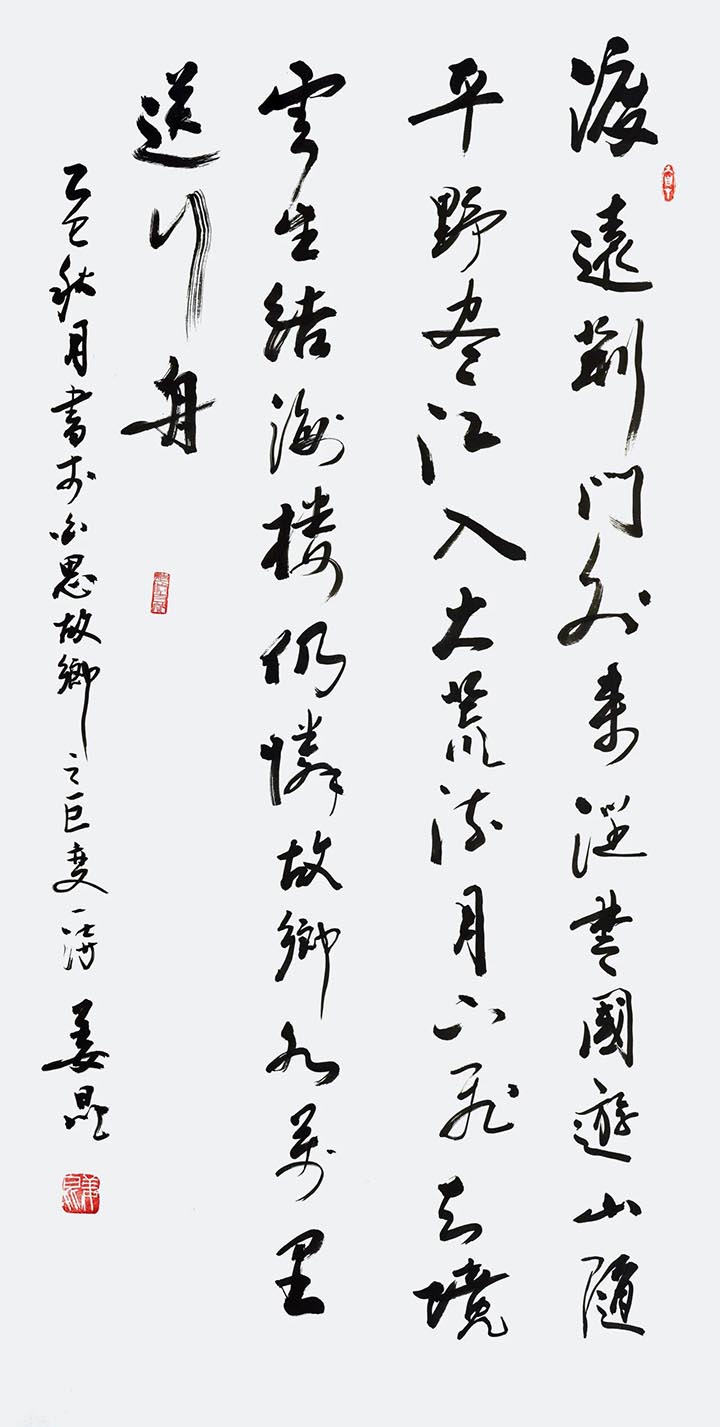 渡遠荆門外来從楚國遊山隨
平野尽江入大荒流月下飛天境
雲生結海楼仍憐故鄉水萬里
送行舟
乙巳秋月書於思故鄉之巨變一姜